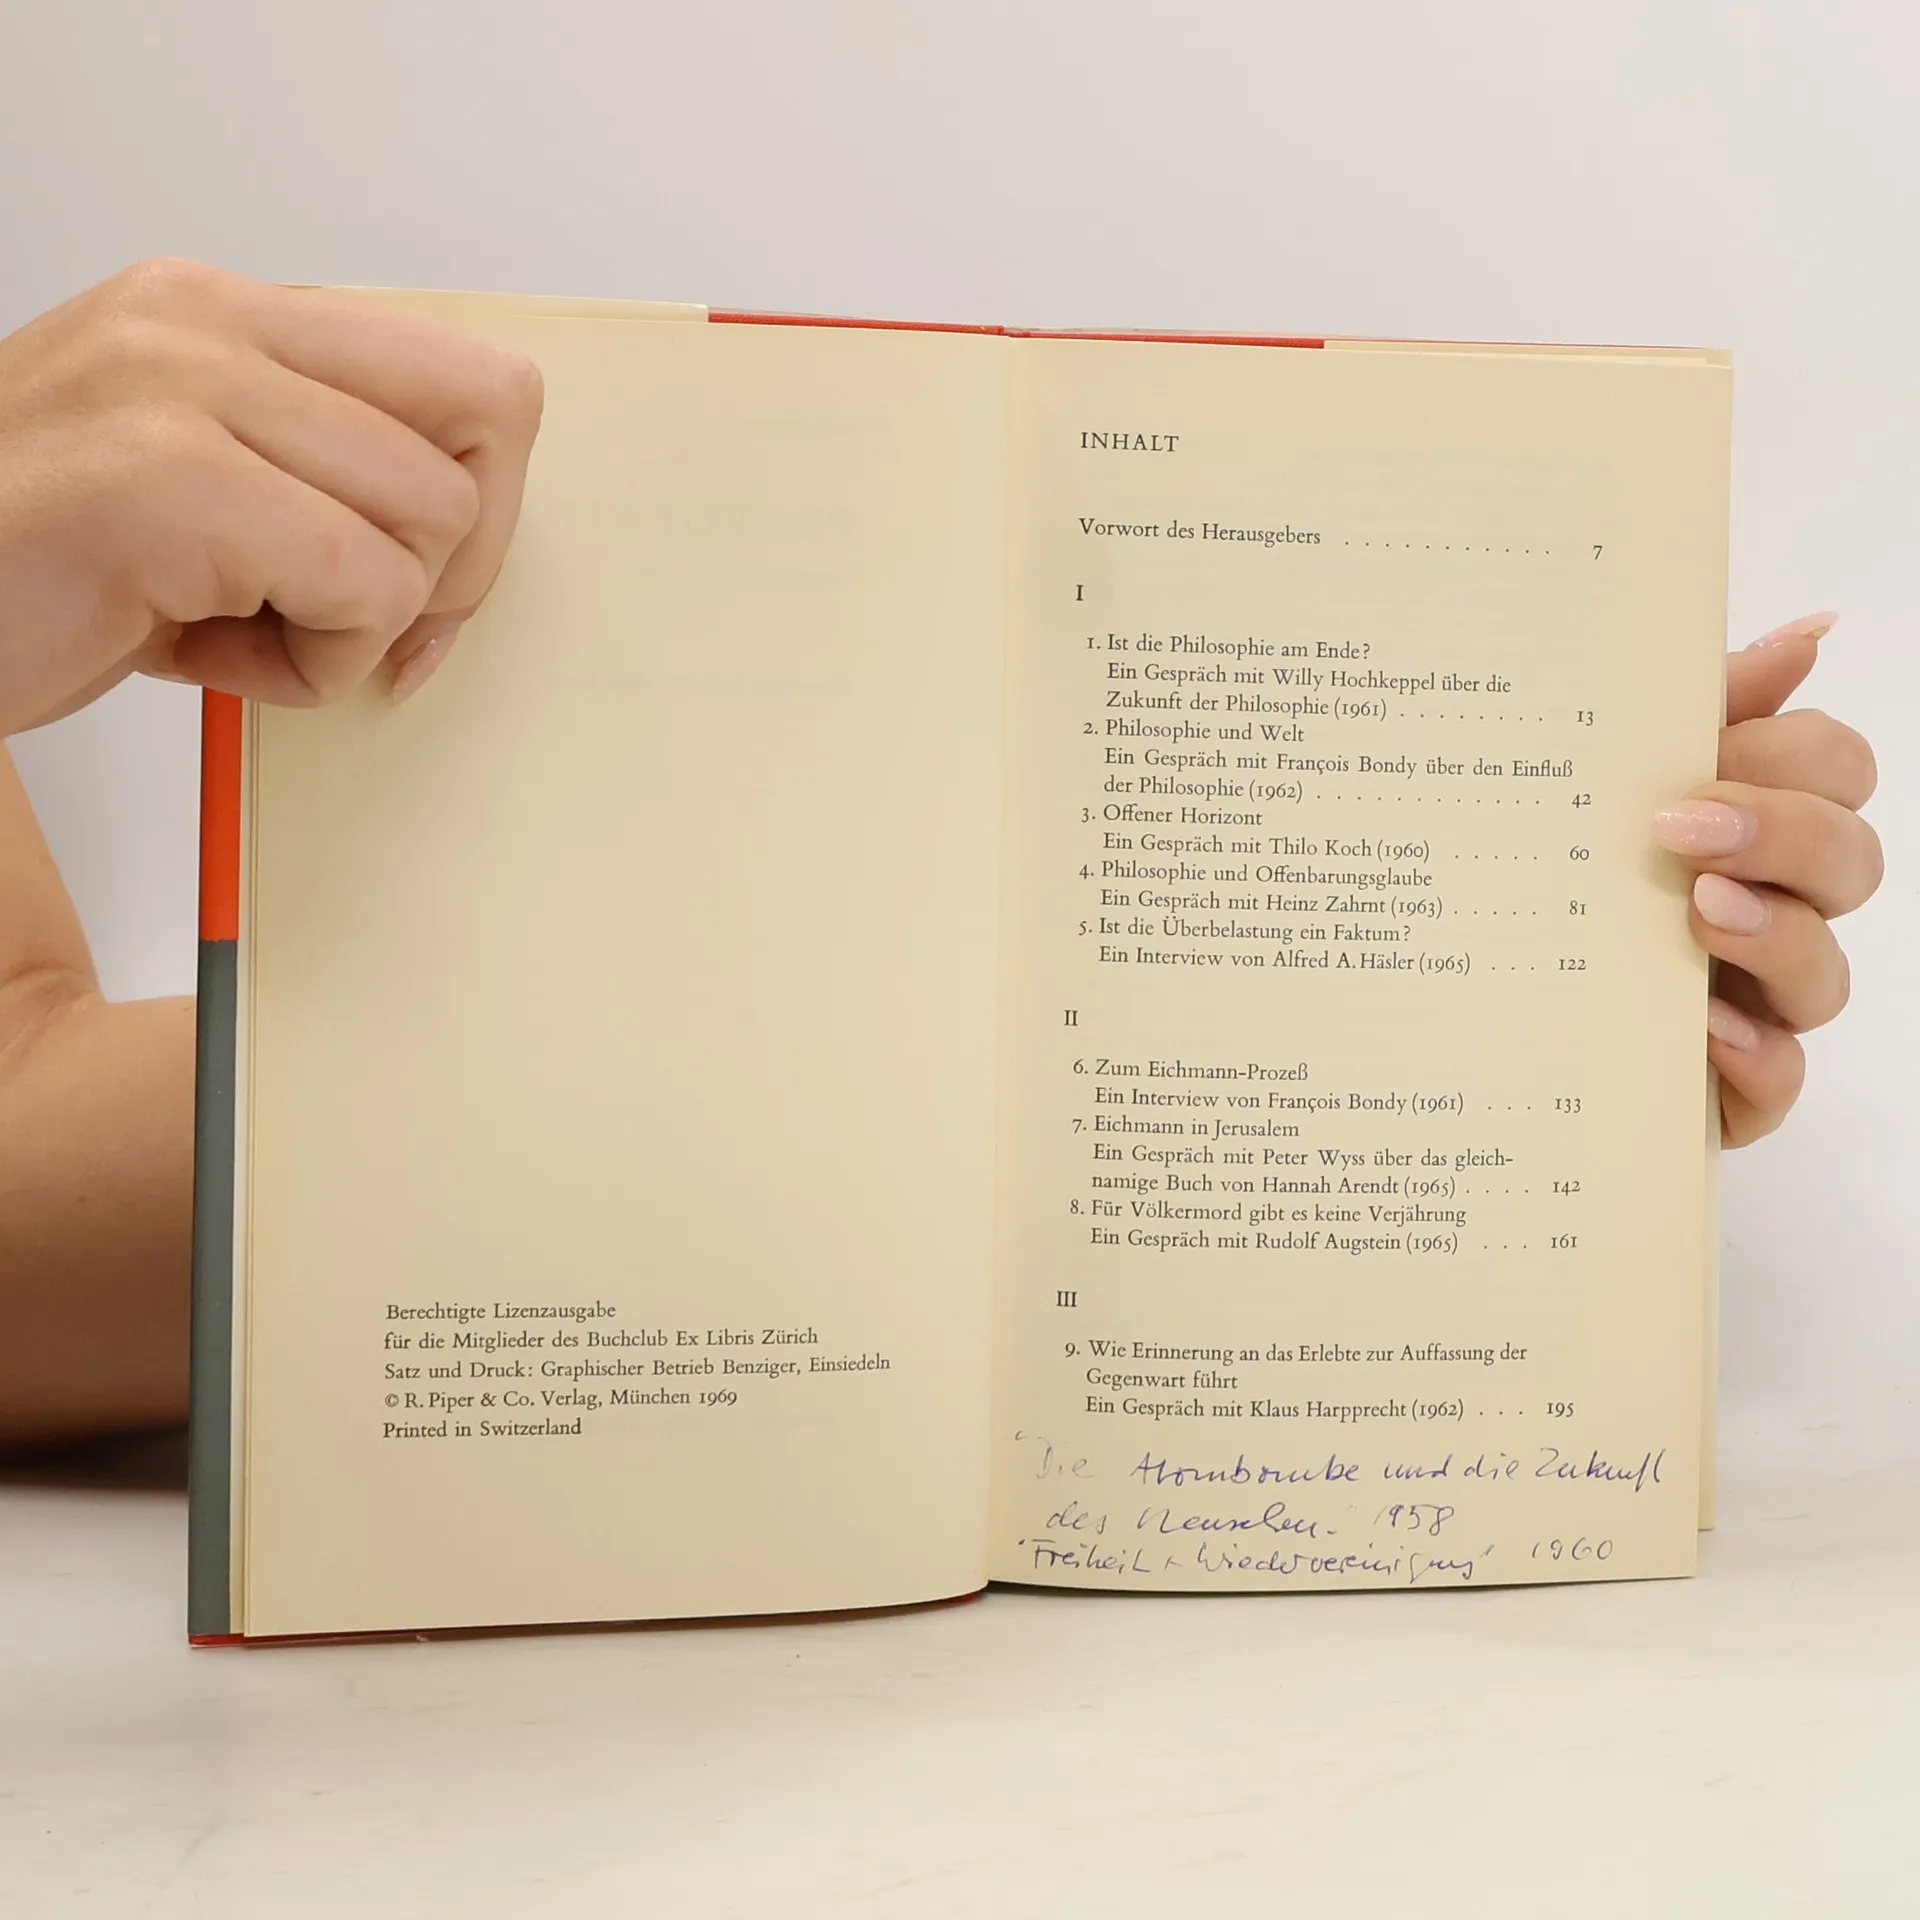 Berechtigte Lizenzausgabe
für die Mitglieder des Buchclub Ex Libris Zürich
Satz und Druck: Graphischer Betrieb Benziger, Einsiedeln
© R. Piper & Co. Verlag, München 1969
Printed in Switzerland
INHALT
Vorwort des Herausgebers . . . . . . . . . . . 7
I
1. Ist die Philosophie am Ende?
Ein Gespräch mit Willy Hochkeppel über die
Zukunft der Philosophie (1961) . . . . . . . . 13
2. Philosophie und Welt
Ein Gespräch mit François Bondy über den Einfluß
der Philosophie (1962) . . . . . . . . . . . . 42
3. Offener Horizont
Ein Gespräch mit Thilo Koch (1960) . . . . . 60
4. Philosophie und Offenbarungsglaube
Ein Gespräch mit Heinz Zahrnt (1963) . . . . . 81
5. Ist die Überbelastung ein Faktum?
Ein Interview von Alfred A. Häsler (1965) . . . 122
II
6. Zum Eichmann-Prozeß
Ein Interview von François Bondy (1961) . . . 133
7. Eichmann in Jerusalem
Ein Gespräch mit Peter Wyss über das gleich-
namige Buch von Hannah Arendt (1965) . . . . 142
8. Für Völkermord gibt es keine Verjährung
Ein Gespräch mit Rudolf Augstein (1965) . . . 161
III
9. Wie Erinnerung an das Erlebte zur Auffassung der
Gegenwart führt
Ein Gespräch mit Klaus Harpprecht (1962) . . . 195
"Die Atombombe und die Zukunft
des Menschen." 1958
"Freiheit + Wiedervereinigung" 1960